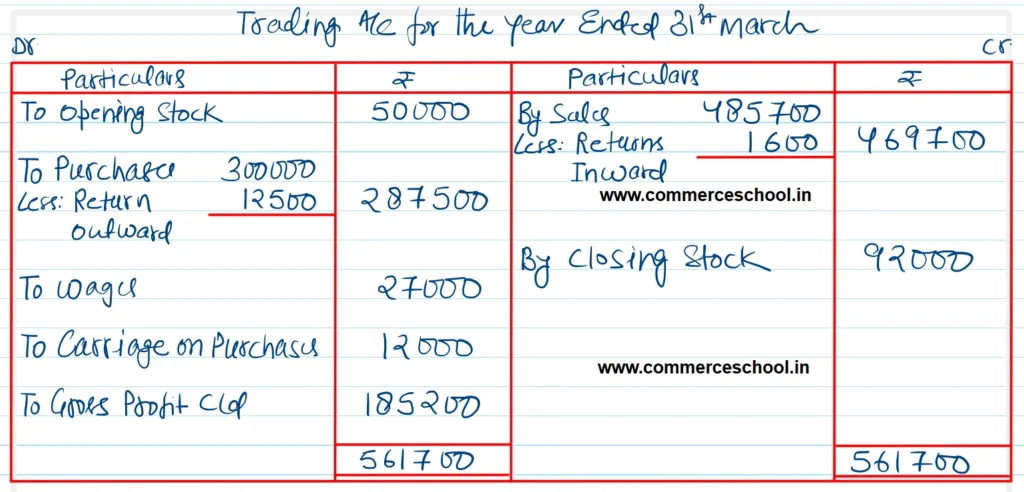 Trading A/C for the year Ended 31st March
Dr Cr
Particulars ₹ Particulars ₹
To Opening Stock 50000 By Sales 485700
Less: Returns 1600 469700
Inward
To Purchases 300000
Less: Return 12500 287500
outward
www.commerceschool.in
By Closing Stock 92000
To wages 27000
To Carriage on Purchases 12000
www.commerceschool.in
To Gross Profit C/d 185200
561700 561700